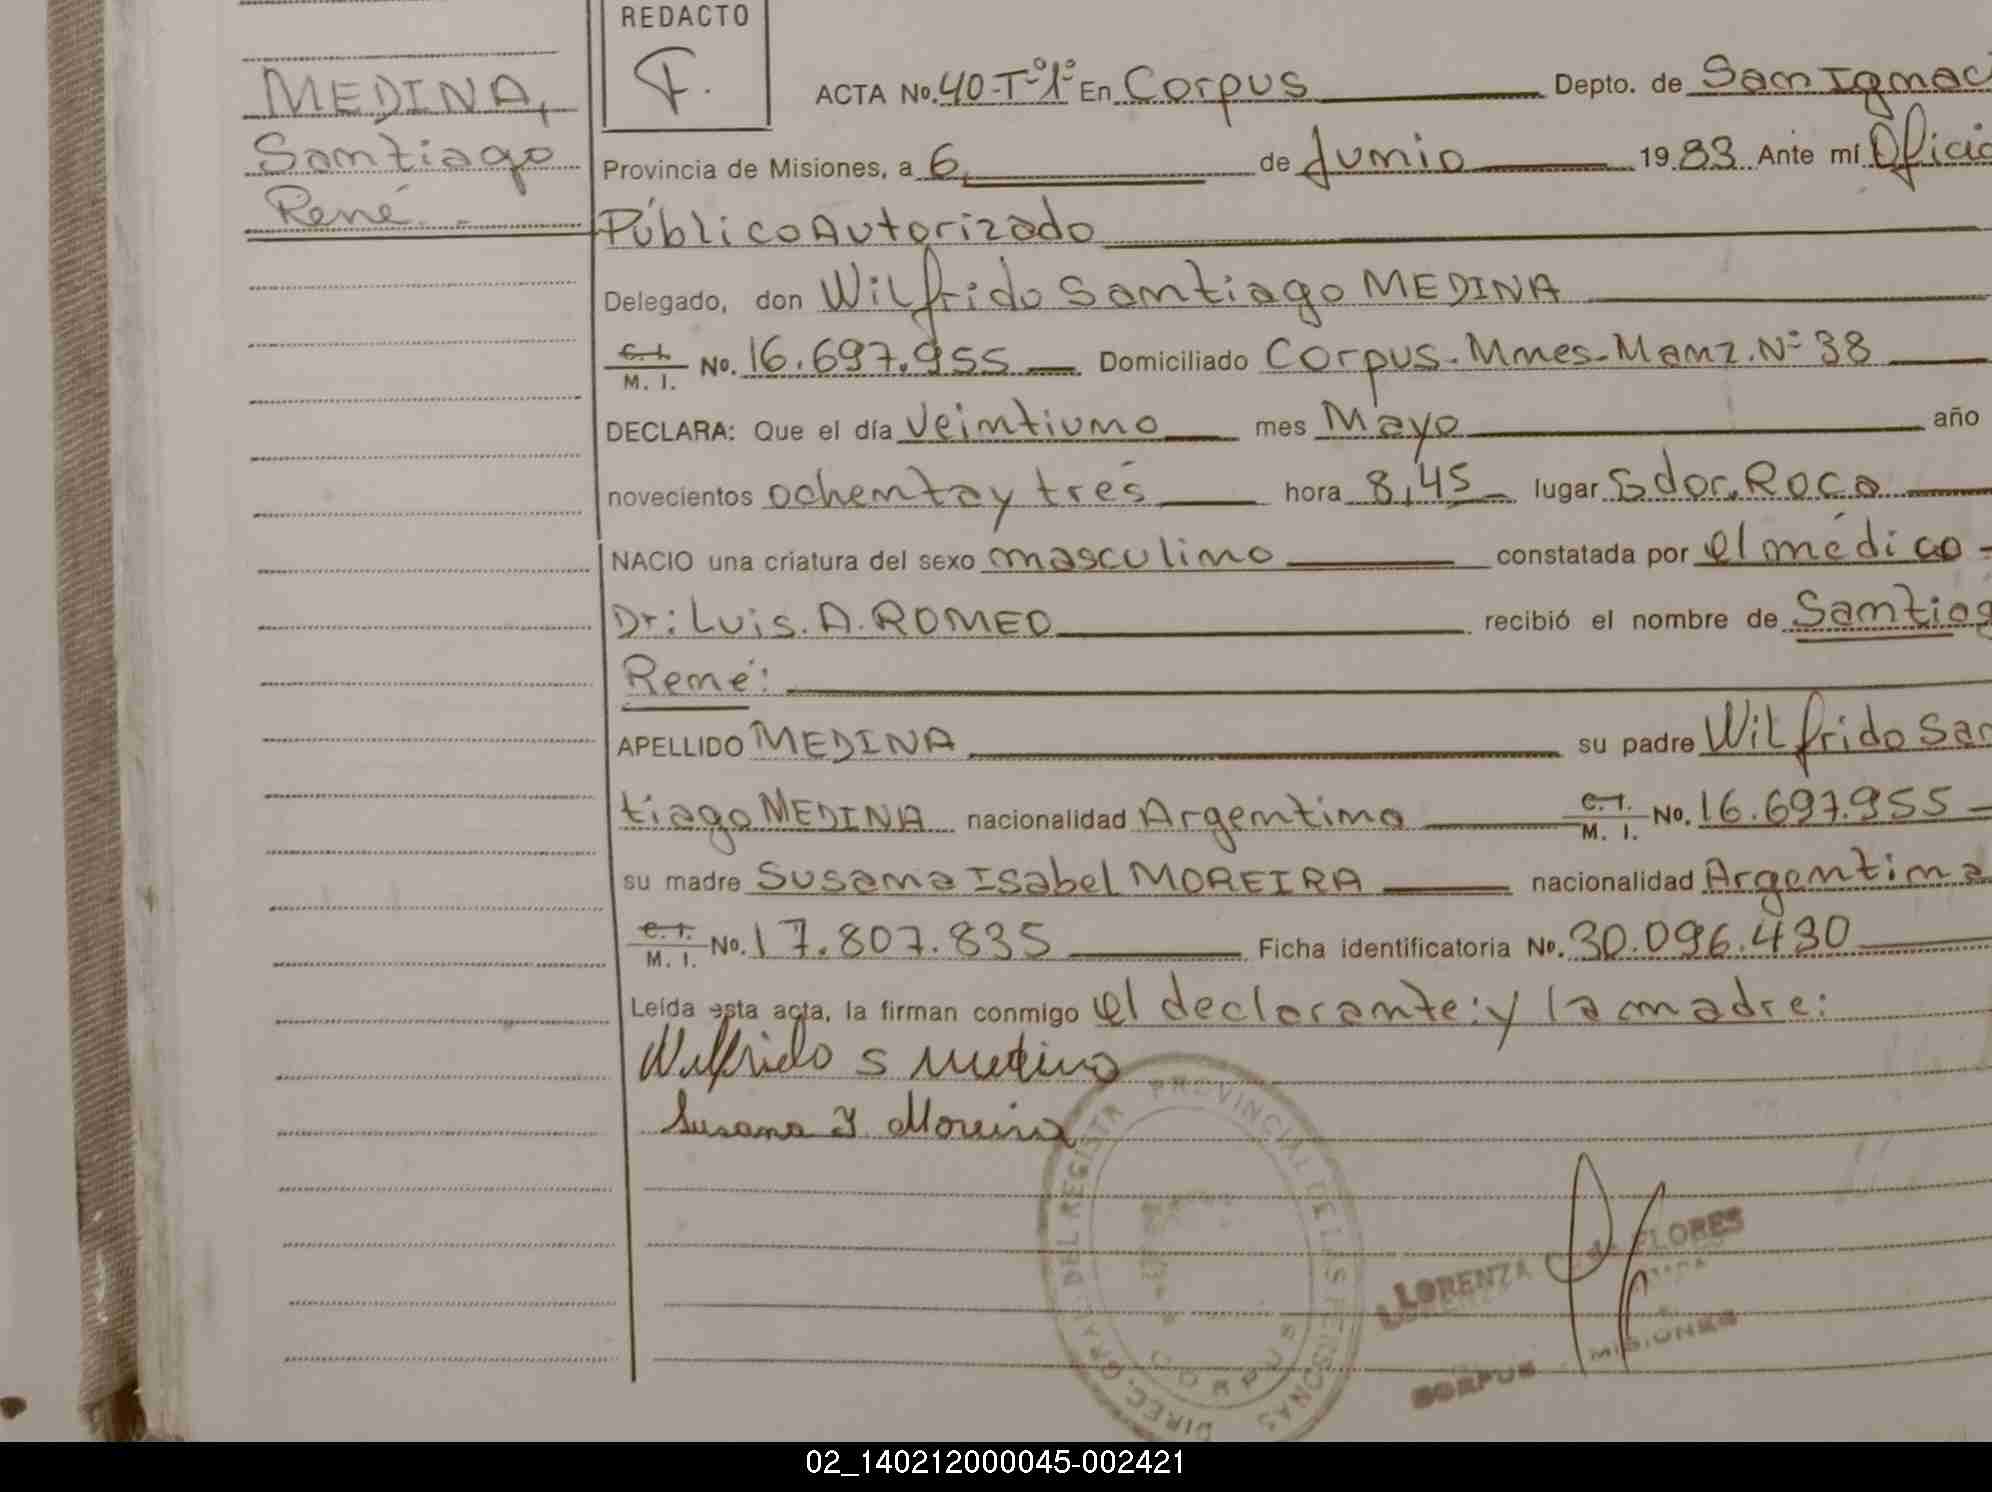 REDACTO
F.
MEDINA,
Santiago
René
ACTA No. 40-Tº1º En Corpus Depto. de San Ignaci
Provincia de Misiones, a 6 de Junio 1983 Ante mí Oficia
Público Autorizado
Delegado, don Wilfrido Santiago MEDINA
C. I. M. I. No. 16.697.955 Domiciliado Corpus-Mnes-Manz.Nº 38
DECLARA: Que el día veintiuno mes Mayo año
novecientos ochenta y trés hora 8,45 lugar Sdor. Roca
NACIO una criatura del sexo masculino constatada por el médico
Dr: Luis. A. ROMEO recibió el nombre de Santiag
René:
APELLIDO MEDINA su padre Wilfrido San
tiago MEDINA nacionalidad Argentino C. I. M. I. No. 16.697.955
su madre Susana Isabel MOREIRA nacionalidad Argentina
C. I. M. I. No. 17.807.835 Ficha identificatoria No. 30.096.430
Leída esta acta, la firman conmigo el declarante: y la madre:
Wilfrido S Medina
Susana I Moreira
DIREC. GRAL. DEL REGISTR PROVINCIAL DE LAS PERSONAS
CORPUS
LORENZA C. de FLORES
CORPUS MISIONES
02_140212000045-002421